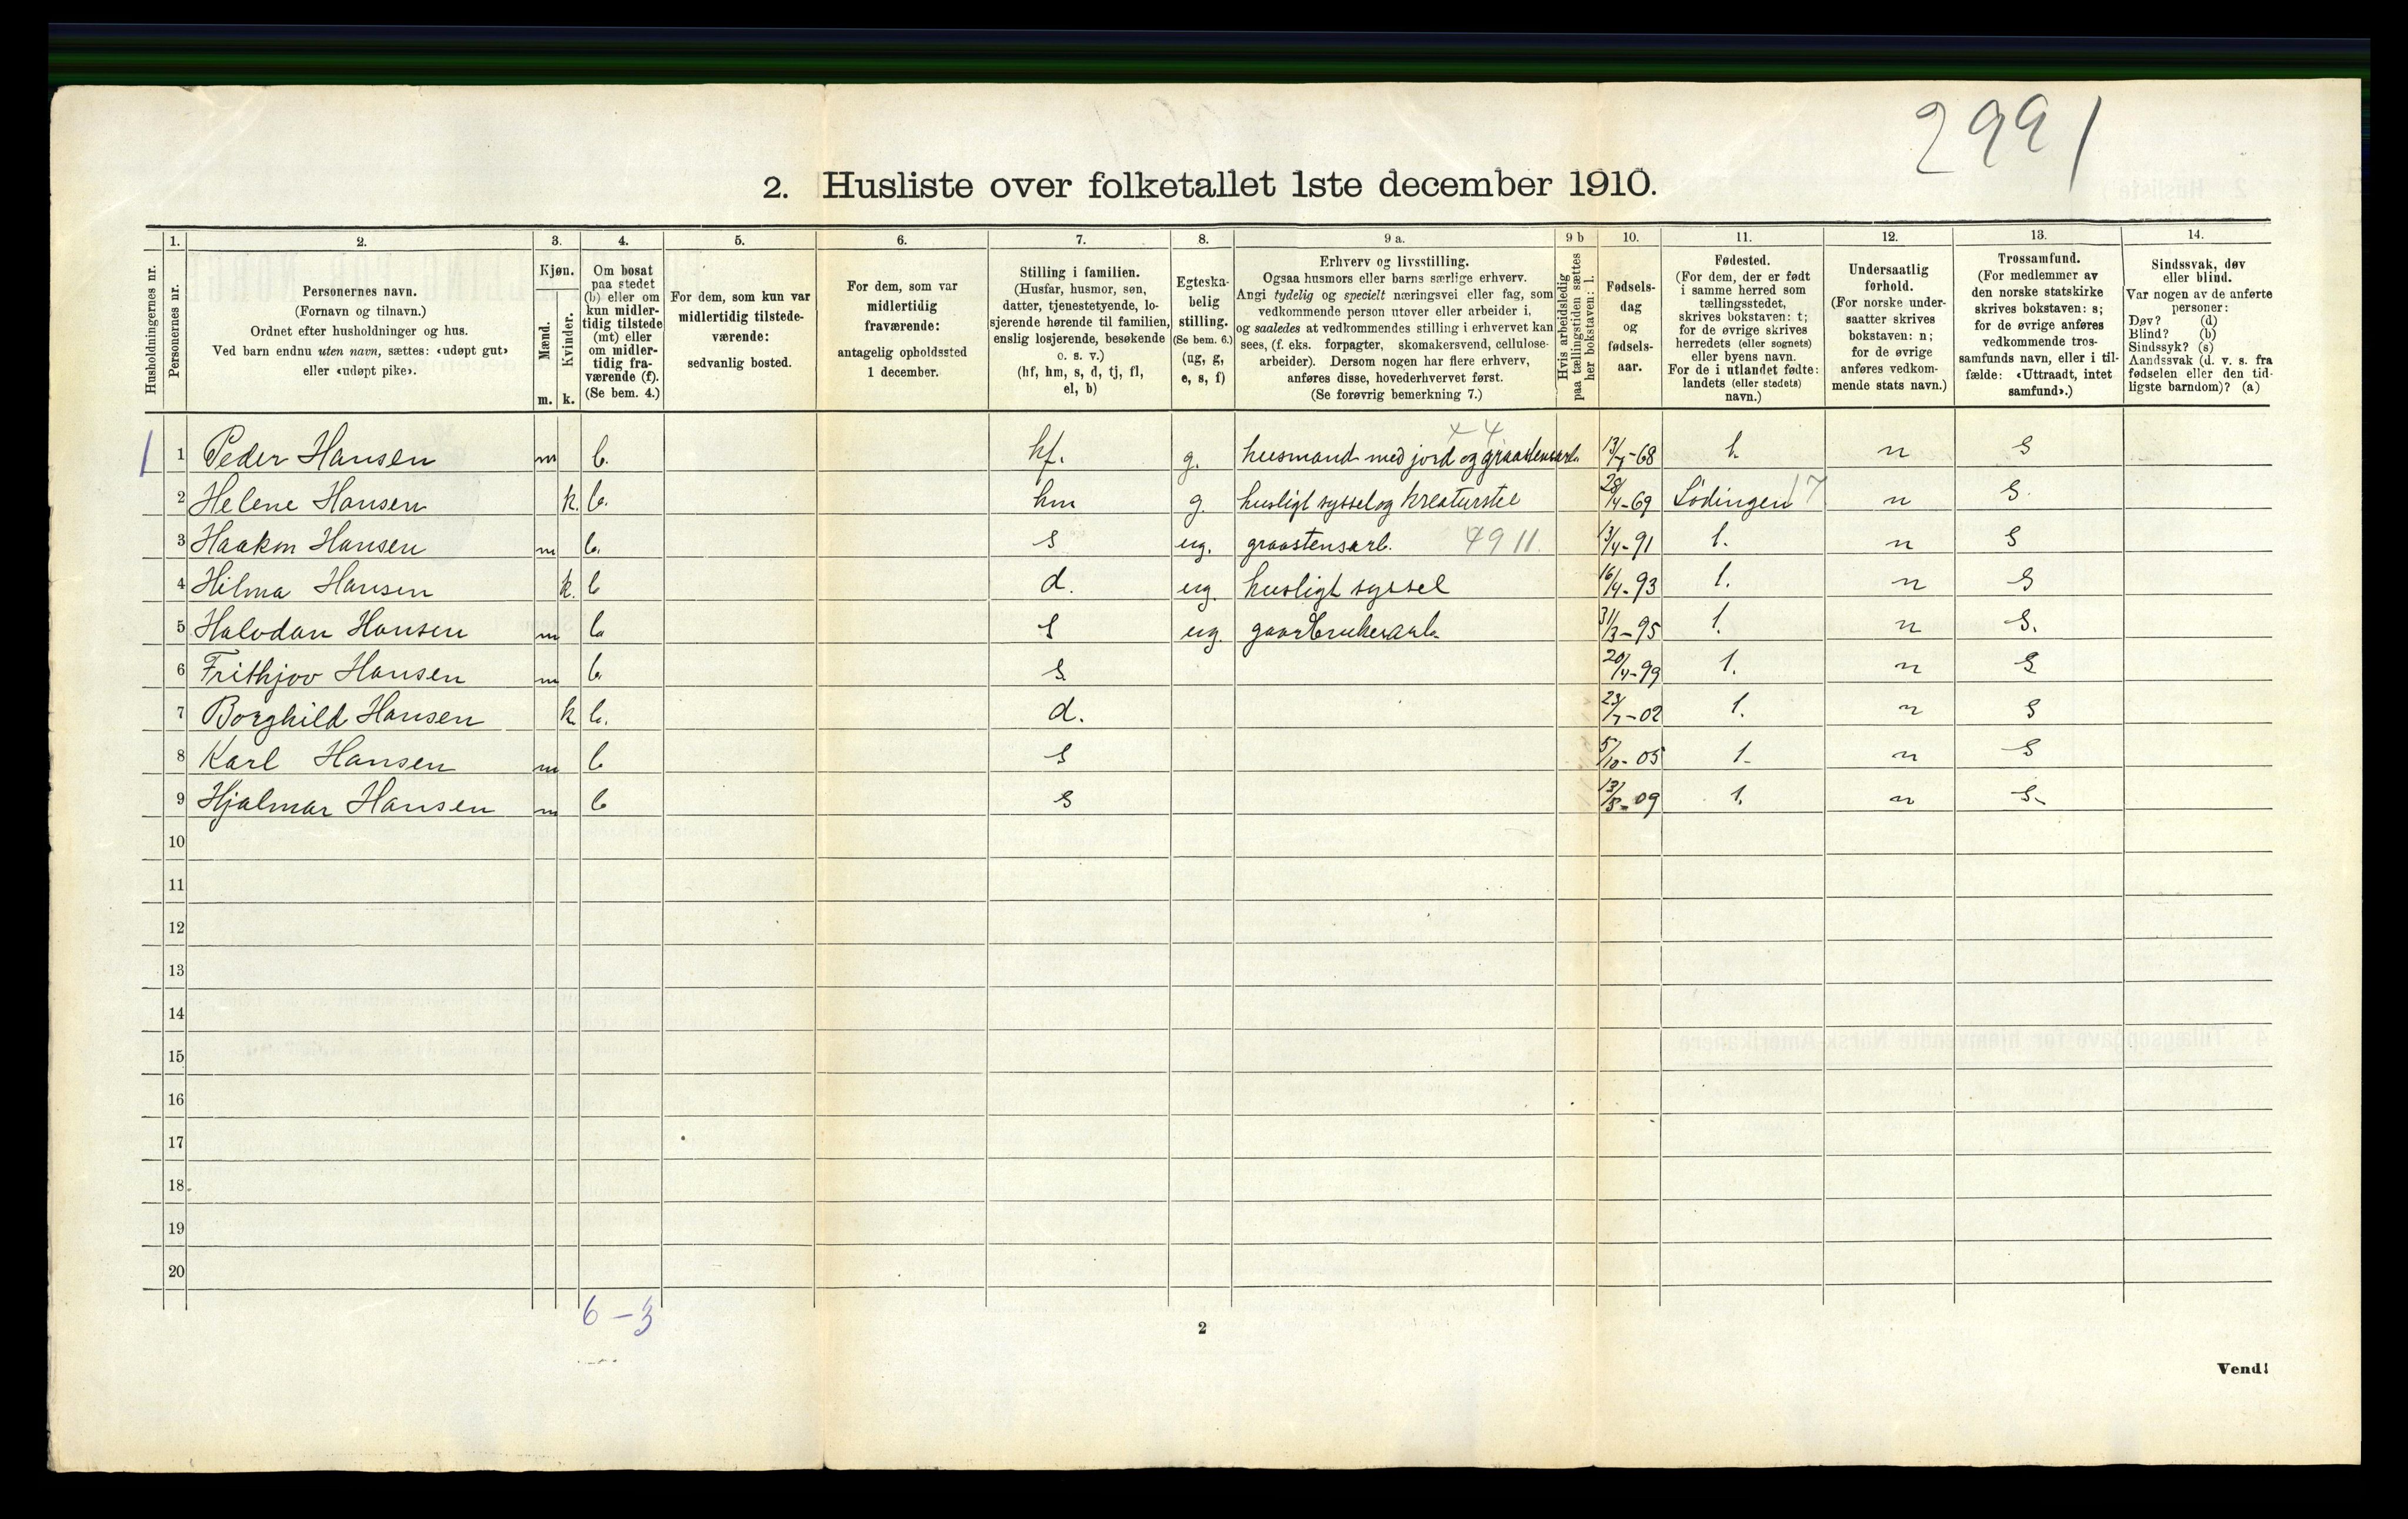 2991
2. Husliste over folketallet 1ste december 1910.
Husholdningernes nr.
1.
Personernes nr.
2.
Personernes navn.
(Fornavn og tilnavn.)
Ordnet efter husholdninger og hus.
Ved barn endnu uten navn, sættes: «udøpt gut»
eller «udøpt pike».
3.
Kjøn.
Mænd.
Kvinder.
m. k.
4.
Om bosat
paa stedet
(b) eller om
kun midler-
tidig tilstede
(mt) eller
om midler-
tidig fra-
værende (f).
(Se bem. 4.)
5.
For dem, som kun var
midlertidig tilstede-
værende:
sedvanlig bosted.
6.
For dem, som var
midlertidig
fraværende:
antagelig opholdssted
1 december.
7.
Stilling i familien.
(Husfar, husmor, søn,
datter, tjenestetyende, lo-
sjerende hørende til familien,
enslig losjerende, besøkende
o. s. v.)
(hf, hm, s, d, tj, fl,
el, b)
8.
Egteska-
belig
stilling.
(Se bem. 6.)
(ug, g,
e, s, f)
9 a.
Erhverv og livsstilling.
Ogsaa husmors eller barns særlige erhverv.
Angi tydelig og specielt næringsvei eller fag, som
vedkommende person utøver eller arbeider i,
og saaledes at vedkommendes stilling i erhvervet kan
sees, (f. eks. forpagter, skomakersvend, cellulose-
arbeider). Dersom nogen har flere erhverv,
anføres disse, hovederhvervet først.
(Se forøvrig bemerkning 7.)
9 b
Hvis arbeidsledig
paa tællingstiden sættes
her bokstaven: l.
10.
Fødsels-
dag
og
fødsels-
aar.
11.
Fødested.
(For dem, der er født
i samme herred som
tællingsstedet,
skrives bokstaven: t;
for de øvrige skrives
herredets (eller sognets)
eller byens navn.
For de i utlandet fødte:
landets (eller stedets)
navn.)
12.
Undersaatlig
forhold.
(For norske under-
saatter skrives
bokstaven: n;
for de øvrige
anføres vedkom-
mende stats navn.)
13.
Trossamfund.
(For medlemmer av
den norske statskirke
skrives bokstaven: s;
for de øvrige anføres
vedkommende tros-
samfunds navn, eller i til-
fælde: «Uttraadt, intet
samfund».)
14.
Sindssvak, døv
eller blind.
Var nogen av de anførte
personer:
Døv? (d)
Blind? (b)
Sindssyk? (s)
Aandssvak (d. v. s. fra
fødselen eller den tid-
ligste barndom)? (a)
1 1 Peder Hansen m b. hf. g. husmand med jord og graastensarb. 68 t. n s
2 Helene Hansen k. b. hm g. husligt syssel og kreaturstel 28/4-69 Lødingen 17 n s
3 Haakon Hansen m b. s ug. graastensarb. 4911. 13/4-91 t. n s
4 Hilma Hansen k. b d. ug. husligt syssel 16/4-93 t. n s
5 Halvdan Hansen m b s ug. gaardbrukerarb. 31/3-95 t. n s.
6 Frithjov Hansen m b. s. 20/4-99 t. n s
7 Borghild Hansen k b. d. 23/7-02 t. n s
8 Karl Hansen m b s 5/10-05 t n s
9 Hjalmar Hansen m b s 13/8-09 t. n s
10
11
12
13
14
15
16
17
18
19
20
6-3
2
Vend!